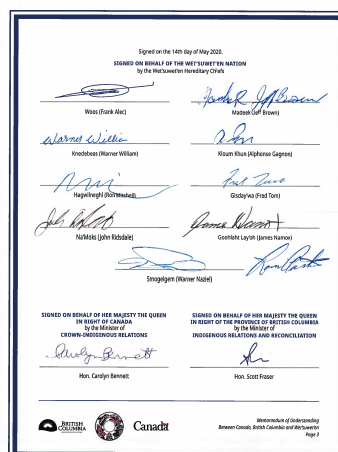 Signed on the 14th day of May 2020.
SIGNED ON BEHALF OF THE WET'SUWET'EN NATION
by the Wet'suwet'en Hereditary Chiefs
Woos (Frank Alec)
Madeek (Jeff Brown)
Warner Willia
Knedebeas (Warner William)
Kloum Khun (Alphonse Gagnon)
Hagwilneghl (Ron Mitchell)
Gisday'wa (Fred Tom)
Na'Moks (John Ridsdale)
Goohlaht Lay'oh (James Namox)
Smogelgem (Warner Naziel)
SIGNED ON BEHALF OF HER MAJESTY THE QUEEN
IN RIGHT OF CANADA
by the Minister of
CROWN-INDIGENOUS RELATIONS
SIGNED ON BEHALF OF HER MAJESTY THE QUEEN
IN RIGHT OF THE PROVINCE OF BRITISH COLUMBIA
by the Minister of
INDIGENOUS RELATIONS AND RECONCILIATION
Carolyn Bennett
Hon. Carolyn Bennett
Hon. Scott Fraser
BRITISH
COLUMBIA
Canada
Memorandum of Understanding
Between Canada, British Columbia and Wet'suwet'en
Page 3